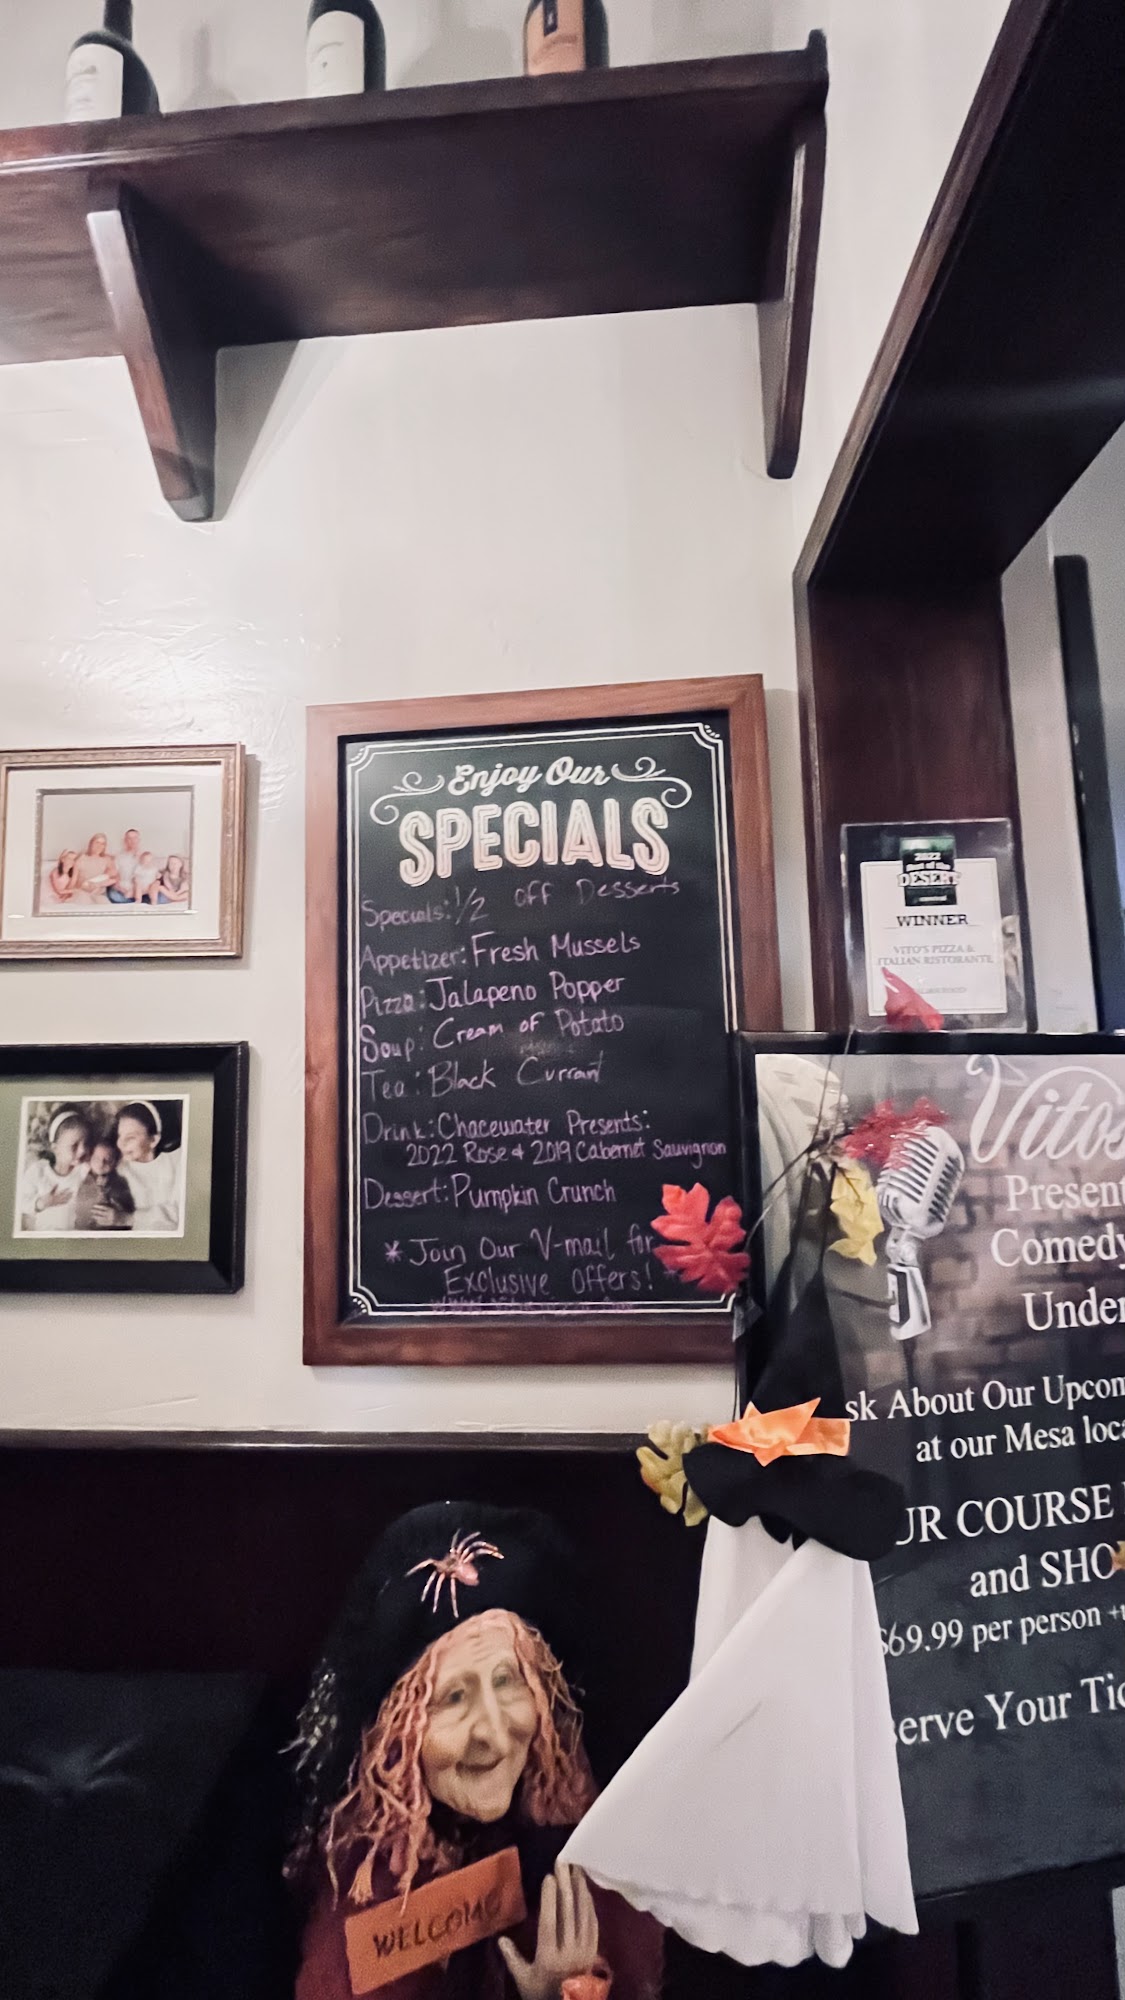 Enjoy Our
SPECIALS
Specials: 1/2 off Desserts
Appetizer: Fresh Mussels
Pizza: Jalapeno Popper
Soup: Cream of Potato
Tea: Black Currant
Drink: Chacewater Presents:
2022 Rose & 2019 Cabernet Sauvignon
Dessert: Pumpkin Crunch
* Join Our V-mail for
Exclusive offers!
2022
Best of the
DESERT
WINNER
VITO'S PIZZA &
ITALIAN RISTORANTE
Vito's
Present
Comedy
Under
sk About Our Upcom
at our Mesa loca
UR COURSE
and SHO
$69.99 per person +t
serve Your Tic
WELCOME